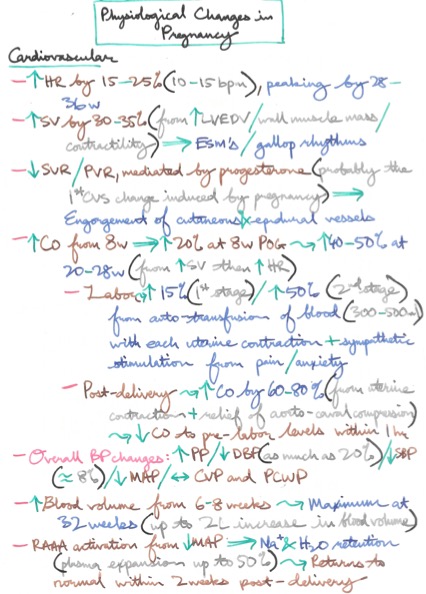 Physiological Changes in
Pregnancy
Cardiovascular
- ↑HR by 15-25% (10-15 bpm), peaking by 28-
36w
- ↑SV by 30-35% (from ↑LVEDV/wall muscle mass/
contractility) ⇒ ESM's / gallop rhythms
- ↓SVR/PVR, mediated by progesterone (probably the
1st CVS change induced by pregnancy) ⇒
Engorgement of cutaneous & epidural vessels
- ↑CO from 8w ⇒ ↑20% at 8w POG ⇝ ↑40-50% at
20-28w (from ↑SV then ↑HR)
- Labor: ↑15% (1st stage) / ↑50% (2nd stage)
from auto-transfusion of blood (300-500ml)
with each uterine contraction + sympathetic
stimulation from pain/anxiety
- Post-delivery ⇝ ↑CO by 60-80% (from uterine
contraction + relief of aorto-caval compression)
⇝ ↓CO to pre-labor levels within 1hr
- Overall BP changes: ↑PP/↓DBP (as much as 20%)/↓SBP
(≈8%)/↓MAP/↔ CVP and PCWP
- ↑Blood volume from 6-8 weeks ⇝ Maximum at
32 weeks (up to 2L increase in blood volume)
- RAAA activation from ↓MAP ⇒ Na+ & H2O retention
(plasma expansion up to 50%) ⇝ Returns to
normal within 2 weeks post-delivery